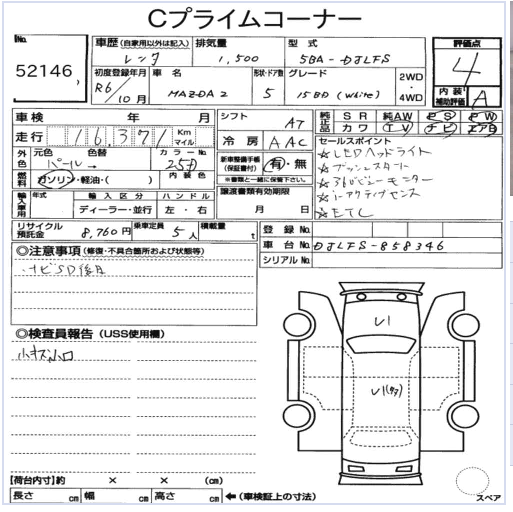 Cプライムコーナー
No.
52146
車歴(自家用以外は記入)
レンタ
排気量
1,500
型式
5BA-DJLFS
評価点
4
初度登録年月
R6
10月
車名
MAZDA2
形状・ドア数
5
グレード
15BD (White)
2WD
・
4WD
内装
補助評価
A
車検 年 月
シフト
AT
純正品
SR
純AW
PS
PW
カワ
TV
ナビ
エアB
走行
16,371
Km
マイル
冷房
AAC
セールスポイント
☆LEDヘッドライト
☆プッシュスタート
☆360°ビューモニター
☆i-アクティブセンス
☆ETC
外色
元色
パール
色替
カラーNo.
25D
新車整備手帳
(保証書付)
有・無
※書類と一緒に保管下さい。
燃料
ガソリン・軽油・( )
内装色
輸入車用
年式
輸入区分
ディーラー・並行
ハンドル
左・右
譲渡書類有効期限
月 日
リサイクル
預託金
8,760円
乗車定員
5人
積載量
t
登録No.
車台No.
DJLFS-858346
シリアルNo.
◎注意事項(修復・不具合箇所および状態等)
ナビSD後日
◎検査員報告(USS使用欄)
小キズ小凹
V1
V1(タ)
スペア
【荷台内寸】約 × × (cm)
長さ cm 幅 cm 高さ cm ←(車検証上の寸法)